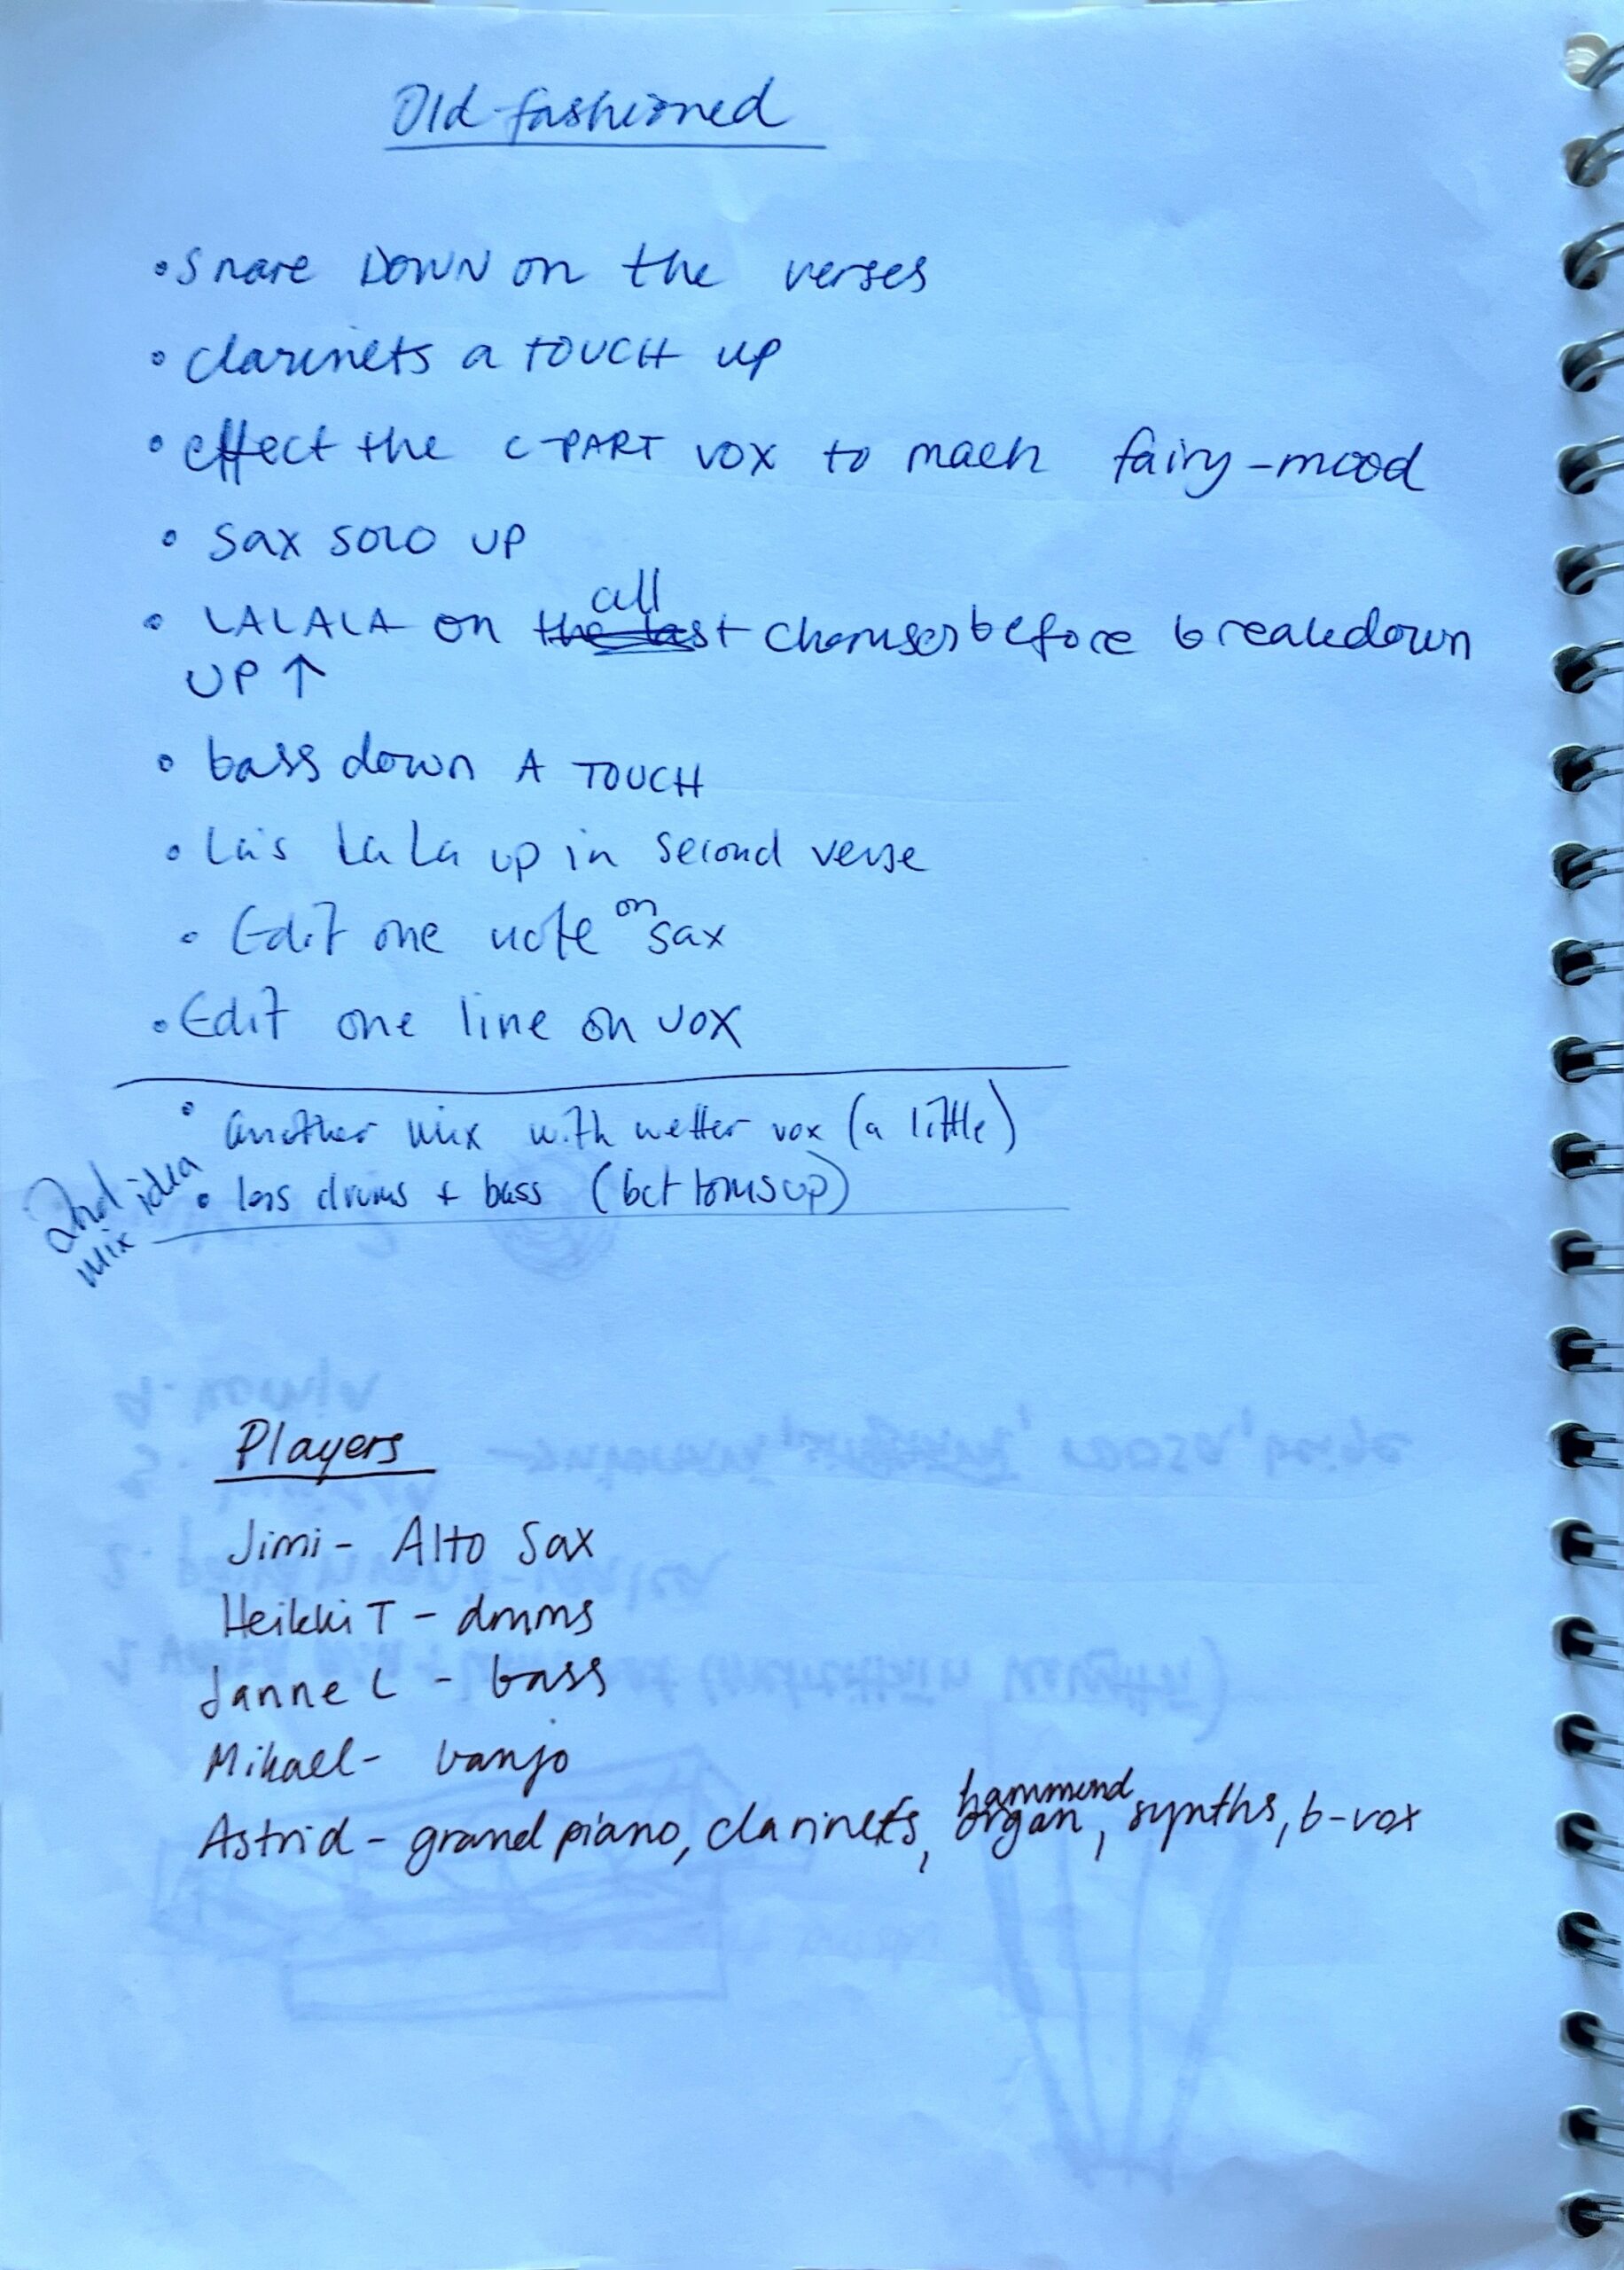 Old fashioned
• Snare DOWN on the verses
• clarinets a TOUCH up
• effect the C-PART vox to mach fairy-mood
• Sax solo up
• LALALA on the last all choruses before breakdown
UP ↑
• bass down A TOUCH
• La's La La up in second verse
• Edit one note on sax
• Edit one line on vox
• another mix with wetter vox (a little)
2nd idea mix
• less drums + bass (bottoms up)
Players
Jimi - Alto Sax
Heikki T - drums
Janne L - bass
Mikael - banjo
Astrid - grand piano, clarinets, hammond organ, synths, b-vox